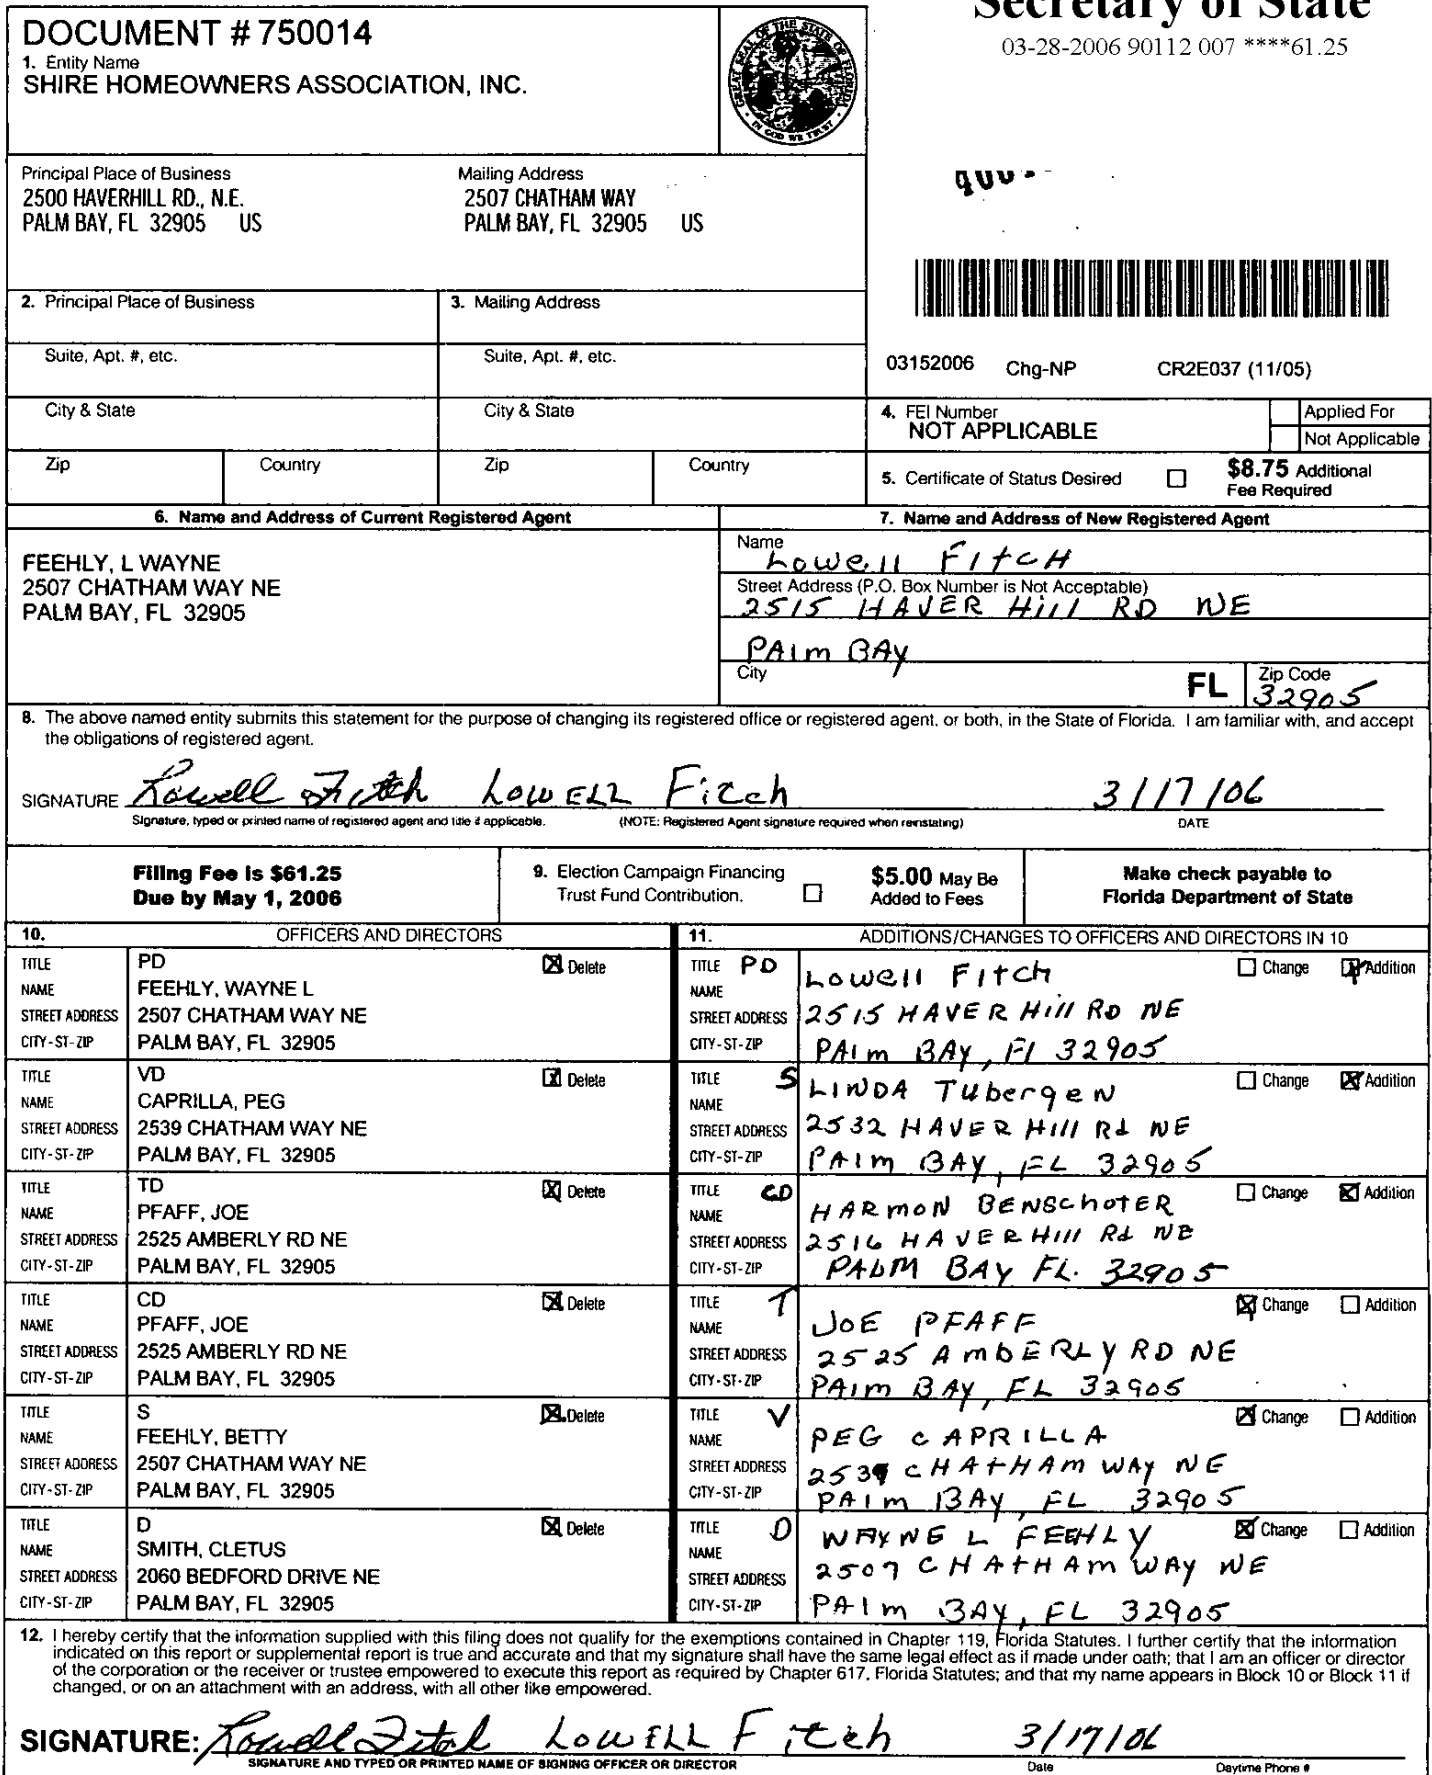 Secretary of State
03-28-2006 90112 007 ****61.25
DOCUMENT # 750014
1. Entity Name
SHIRE HOMEOWNERS ASSOCIATION, INC.
GREAT SEAL OF THE STATE OF FLORIDA
IN GOD WE TRUST
Principal Place of Business
2500 HAVERHILL RD., N.E.
PALM BAY, FL 32905 US
Mailing Address
2507 CHATHAM WAY
PALM BAY, FL 32905 US
2. Principal Place of Business
3. Mailing Address
Suite, Apt. #, etc.
Suite, Apt. #, etc.
City & State
City & State
Zip Country
Zip Country
03152006 Chg-NP CR2E037 (11/05)
4. FEI Number
NOT APPLICABLE
Applied For
Not Applicable
5. Certificate of Status Desired
$8.75 Additional
Fee Required
6. Name and Address of Current Registered Agent
FEEHLY, L WAYNE
2507 CHATHAM WAY NE
PALM BAY, FL 32905
7. Name and Address of New Registered Agent
Name
Lowell Fitch
Street Address (P.O. Box Number is Not Acceptable)
2515 HAVER Hill RD NE
PAlm BAY
City
FL
Zip Code
32905
8. The above named entity submits this statement for the purpose of changing its registered office or registered agent, or both, in the State of Florida. I am familiar with, and accept
the obligations of registered agent.
SIGNATURE Lowell Fitch LOWELL Fitch 3/17/06
Signature, typed or printed name of registered agent and title if applicable. (NOTE: Registered Agent signature required when reinstating) DATE
Filing Fee is $61.25
Due by May 1, 2006
9. Election Campaign Financing
Trust Fund Contribution.
$5.00 May Be
Added to Fees
Make check payable to
Florida Department of State
10. OFFICERS AND DIRECTORS
TITLE PD Delete
NAME FEEHLY, WAYNE L
STREET ADDRESS 2507 CHATHAM WAY NE
CITY-ST-ZIP PALM BAY, FL 32905
TITLE VD Delete
NAME CAPRILLA, PEG
STREET ADDRESS 2539 CHATHAM WAY NE
CITY-ST-ZIP PALM BAY, FL 32905
TITLE TD Delete
NAME PFAFF, JOE
STREET ADDRESS 2525 AMBERLY RD NE
CITY-ST-ZIP PALM BAY, FL 32905
TITLE CD Delete
NAME PFAFF, JOE
STREET ADDRESS 2525 AMBERLY RD NE
CITY-ST-ZIP PALM BAY, FL 32905
TITLE S Delete
NAME FEEHLY, BETTY
STREET ADDRESS 2507 CHATHAM WAY NE
CITY-ST-ZIP PALM BAY, FL 32905
TITLE D Delete
NAME SMITH, CLETUS
STREET ADDRESS 2060 BEDFORD DRIVE NE
CITY-ST-ZIP PALM BAY, FL 32905
11. ADDITIONS/CHANGES TO OFFICERS AND DIRECTORS IN 10
TITLE PD Change Addition
NAME Lowell Fitch
STREET ADDRESS 2515 HAVER Hill RD NE
CITY-ST-ZIP PAlm BAY, Fl 32905
TITLE S Change Addition
NAME LINDA Tubergen
STREET ADDRESS 2532 HAVER Hill Rd NE
CITY-ST-ZIP PAlm BAY, FL 32905
TITLE CD Change Addition
NAME HARMON BENSCHOTER
STREET ADDRESS 2516 HAVER Hill Rd NE
CITY-ST-ZIP PALM BAY FL. 32905
TITLE T Change Addition
NAME JOE PFAFF
STREET ADDRESS 2525 AMBERLY RD NE
CITY-ST-ZIP PAlm BAY, FL 32905
TITLE V Change Addition
NAME PEG CAPRILLA
STREET ADDRESS 2539 CHATHAM WAY NE
CITY-ST-ZIP PAlm BAY, FL 32905
TITLE D Change Addition
NAME WAYNE L FEEHLY
STREET ADDRESS 2507 CHATHAM WAY NE
CITY-ST-ZIP PAlm BAY, FL 32905
12. I hereby certify that the information supplied with this filing does not qualify for the exemptions contained in Chapter 119, Florida Statutes. I further certify that the information
indicated on this report or supplemental report is true and accurate and that my signature shall have the same legal effect as if made under oath; that I am an officer or director
of the corporation or the receiver or trustee empowered to execute this report as required by Chapter 617, Florida Statutes; and that my name appears in Block 10 or Block 11 if
changed, or on an attachment with an address, with all other like empowered.
SIGNATURE: Lowell Fitch LOWELL Fitch 3/17/06
SIGNATURE AND TYPED OR PRINTED NAME OF SIGNING OFFICER OR DIRECTOR Date Daytime Phone #